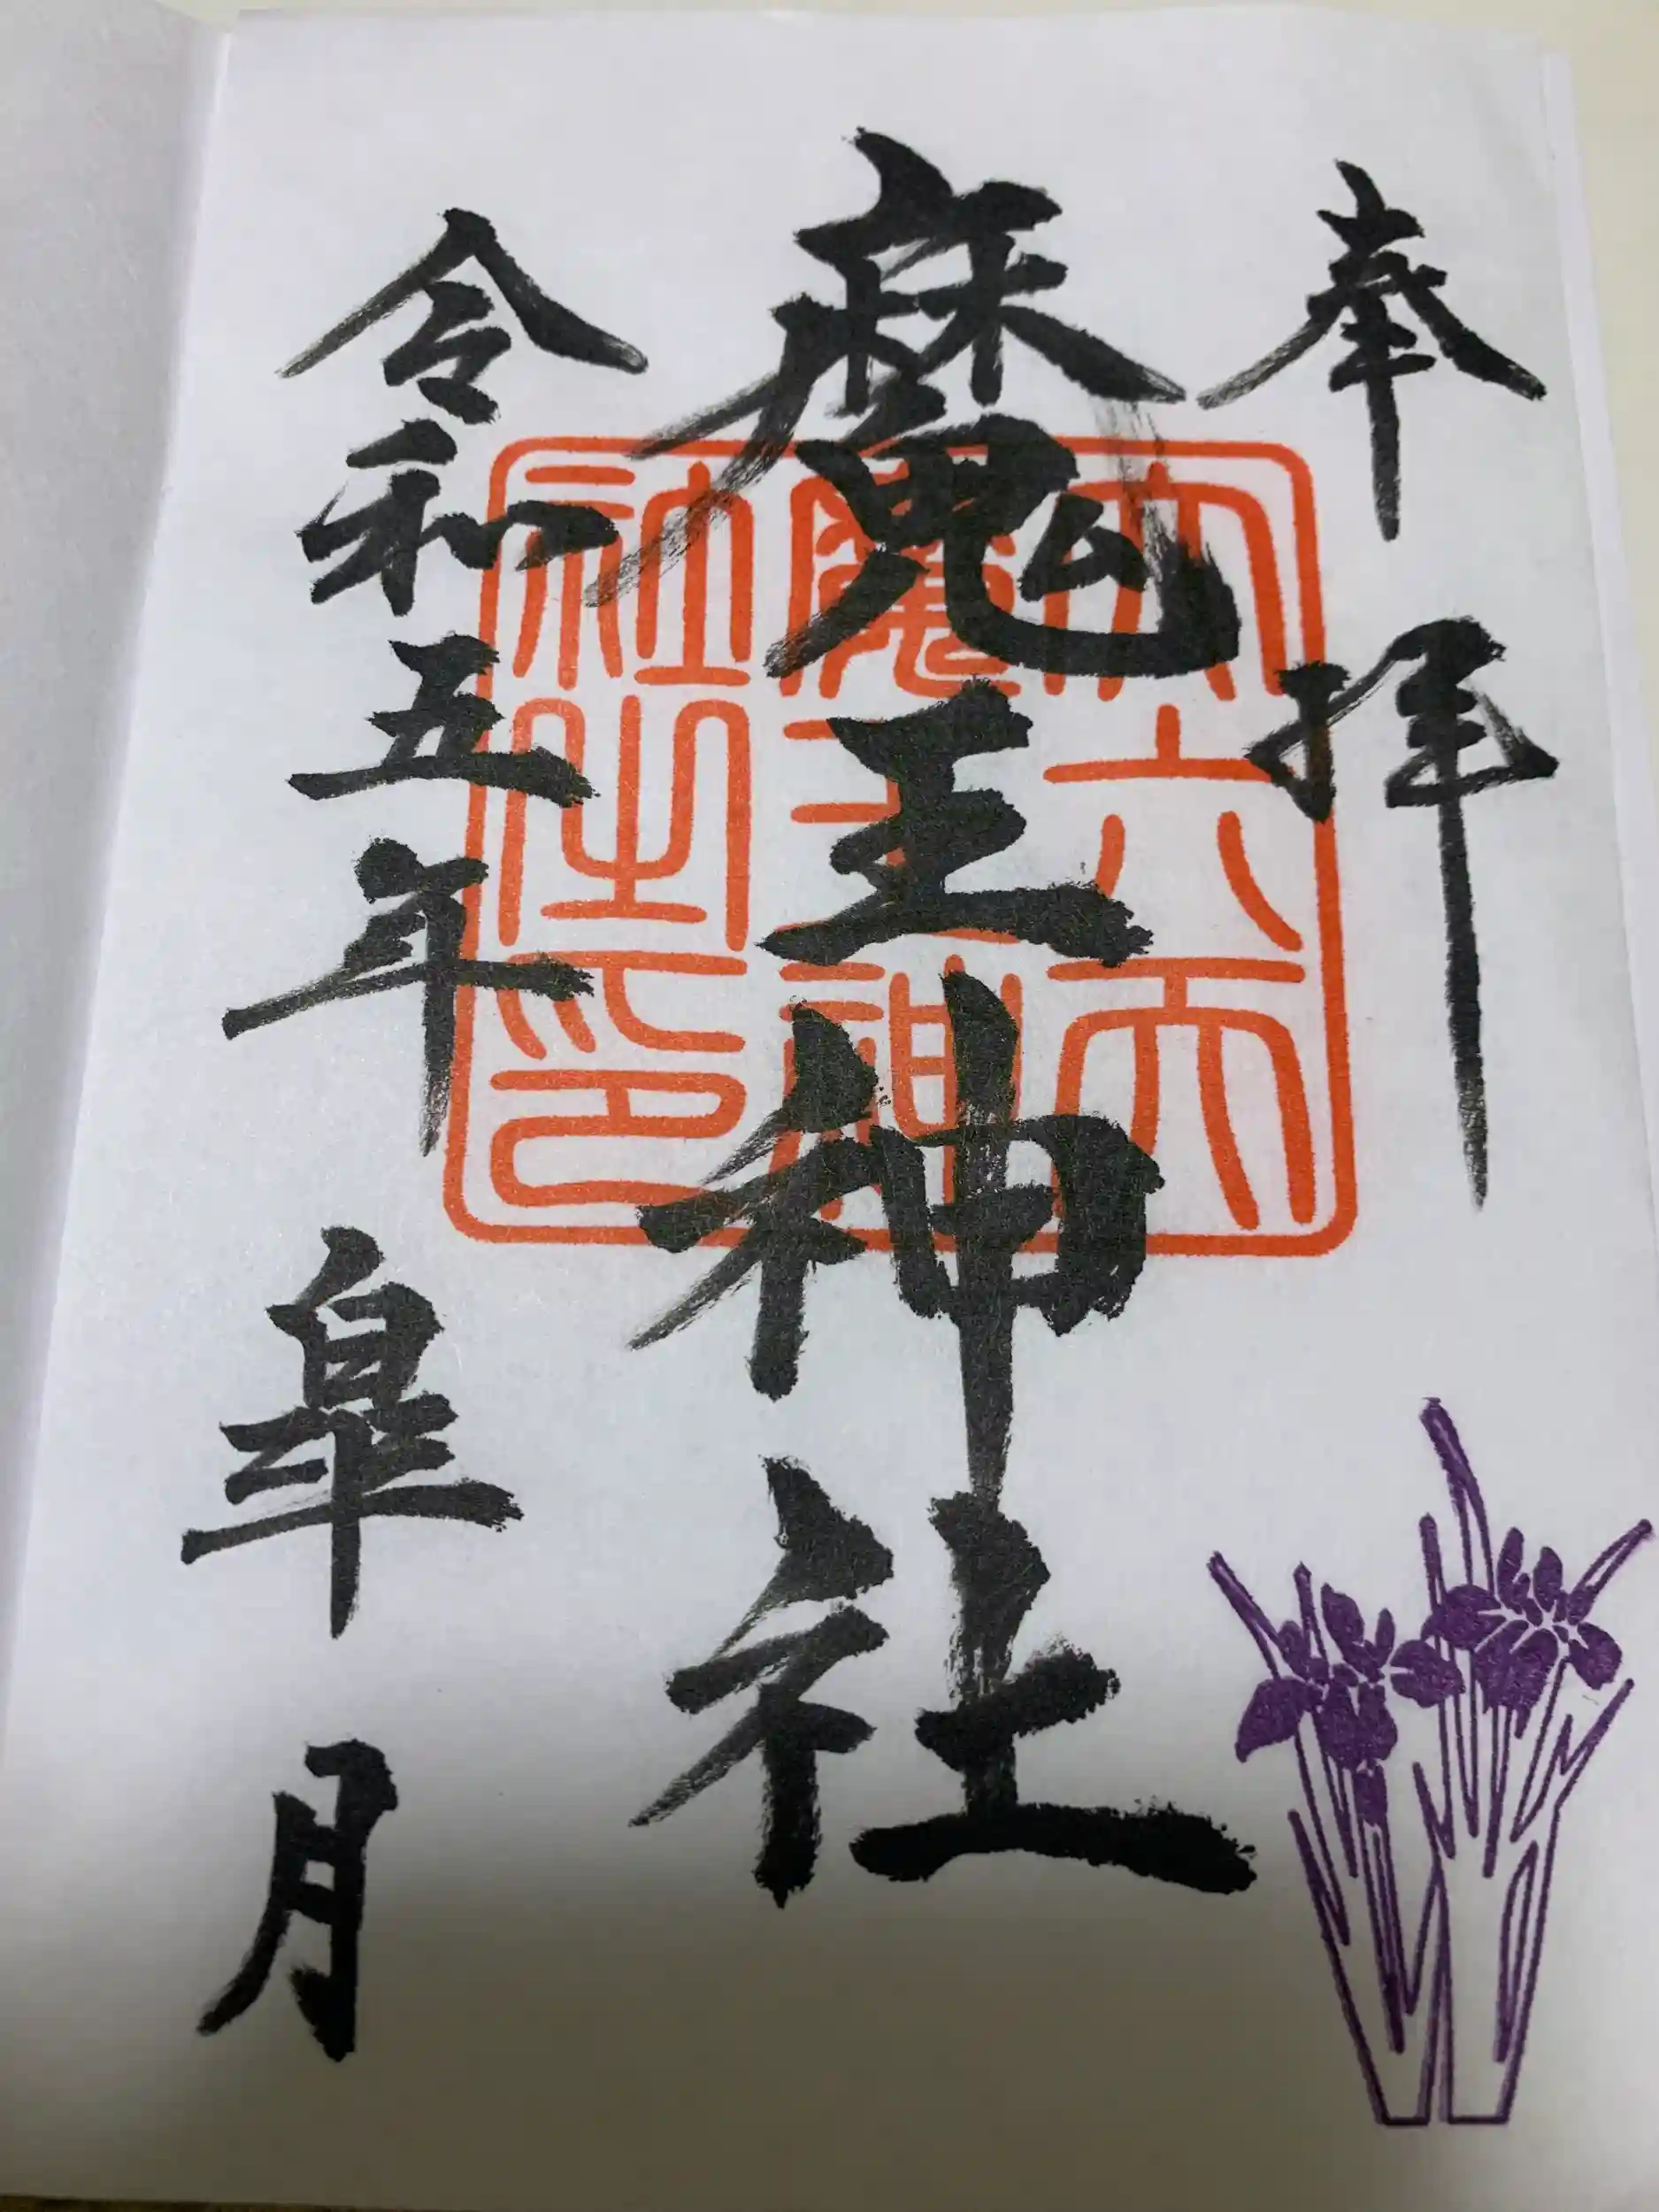 奉拝
魔王神社
令和五年皐月
六六天
魔王神
社之印